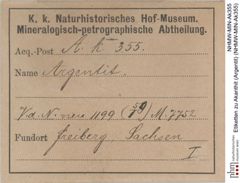 K. k. Naturhistorisches Hof-Museum.
Mineralogisch-petrographische Abtheilung.
Acq.-Post A k 355.
Name Argentit.
V. d. N. neue 1199 (59) M. 7752
Fundort Freiberg, Sachsen
I
NHMW-MIN-Ak355
Etiketten zu Akanthit (Argentit) (NHMW-MIN-Ak355)